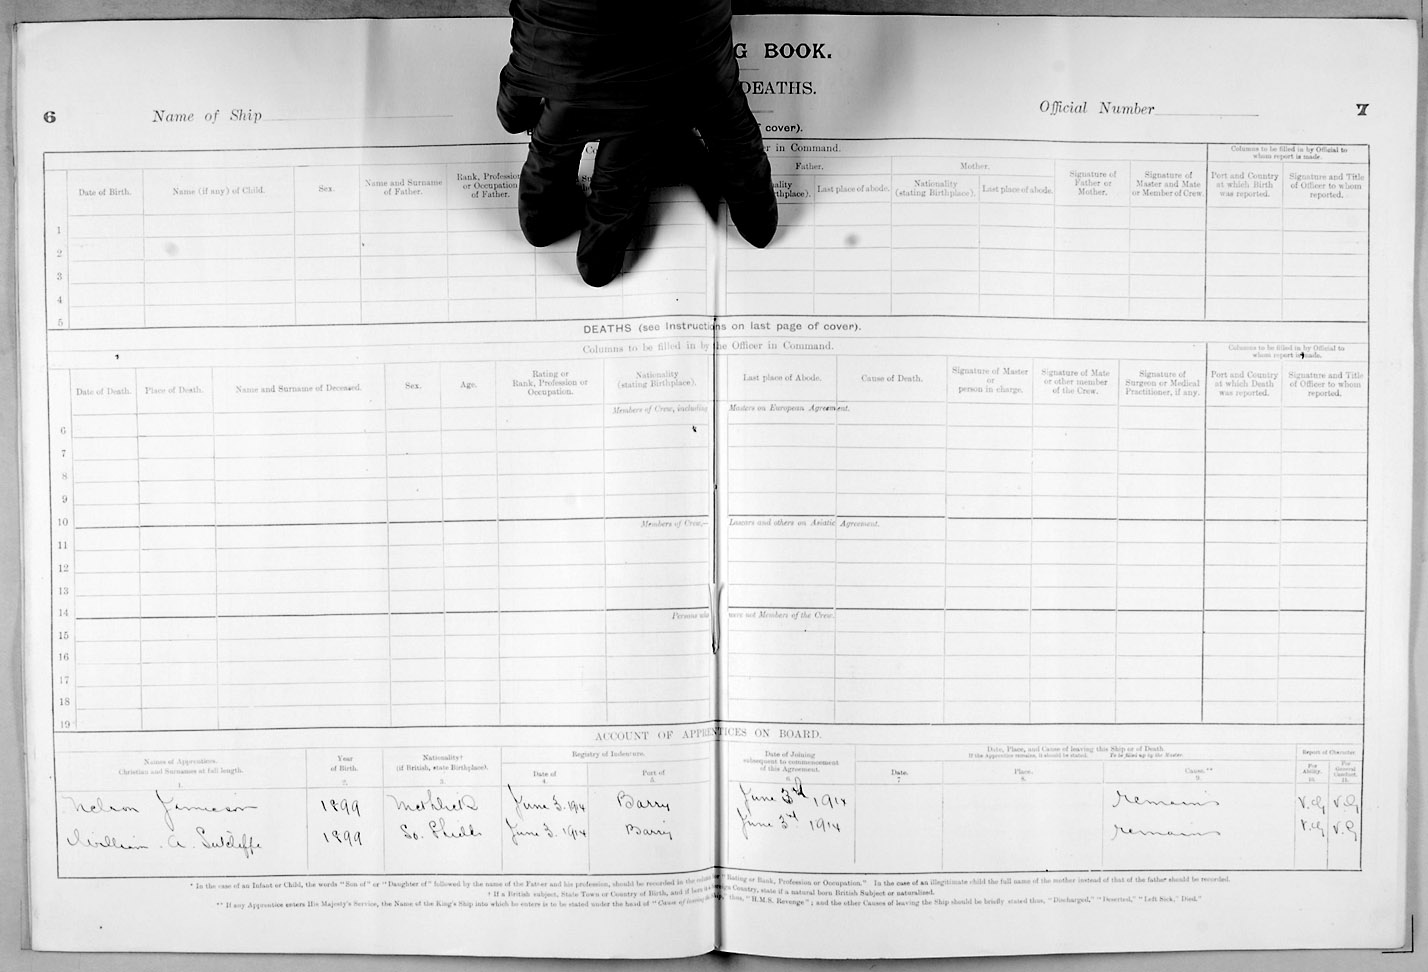 G BOOK.
DEATHS.
6 Name of Ship
Official Number 7
cover).
er in Command.
Columns to be filled in by Official to whom report is made.
Father.
Mother.
Date of Birth.
Name (if any) of Child.
Sex.
Name and Surname of Father.
Rank, Profession or Occupation of Father.
Last place of abode.
Nationality (stating Birthplace).
Last place of abode.
Signature of Father or Mother.
Signature of Master and Mate or Member of Crew.
Port and Country at which Birth was reported.
Signature and Title of Officer to whom reported.
1
2
3
4
5
DEATHS (see Instructions on last page of cover).
Columns to be filled in by the Officer in Command.
Columns to be filled in by Official to whom report is made.
Date of Death.
Place of Death.
Name and Surname of Deceased.
Sex.
Age.
Rating or Rank, Profession or Occupation.
Nationality (stating Birthplace).
Last place of Abode.
Cause of Death.
Signature of Master or person in charge.
Signature of Mate or other member of the Crew.
Signature of Surgeon or Medical Practitioner, if any.
Port and Country at which Death was reported.
Signature and Title of Officer to whom reported.
Members of Crew, including Masters on European Agreement.
6
7
8
9
10
Members of Crew.— Lascars and others on Asiatic Agreement.
11
12
13
14
Persons who were not Members of the Crew.
15
16
17
18
19
ACCOUNT OF APPRENTICES ON BOARD.
Names of Apprentices. Christian and Surnames at full length. 1.
Year of Birth. 2.
Nationality† (if British, state Birthplace). 3.
Registry of Indenture.
Date of 4.
Port of 5.
Date of Joining subsequent to commencement of this Agreement. 6.
Date, Place, and Cause of leaving this Ship or of Death.
If the Apprentice remains, it should be stated. To be filled up by the Master.
Date. 7.
Place. 8.
Cause.** 9.
Report of Character.
For Ability. 10.
For General Conduct. 11.
Nelson Jamieson 1899 Methlick June 3. 1914 Barry June 3rd 1914 remains V.G V.G
William . A. Sutcliffe 1899 So. Shields June 3. 1914 Barry June 3rd 1914 remains V.G V.G
* In the case of an Infant or Child, the words "Son of" or "Daughter of" followed by the name of the Father and his profession, should be recorded in the column for "Rating or Rank, Profession or Occupation." In the case of an illegitimate child the full name of the mother instead of that of the father should be recorded.
† If a British subject, State Town or Country of Birth, and if born in a Foreign Country, state if a natural born British Subject or naturalised.
** If any Apprentice enters His Majesty's Service, the Name of the King's Ship into which he enters is to be stated under the head of "Cause of leaving this Ship," thus, "H.M.S. Revenge"; and the other Causes of leaving the Ship should be briefly stated thus, "Discharged," "Deserted," "Left Sick," Died."